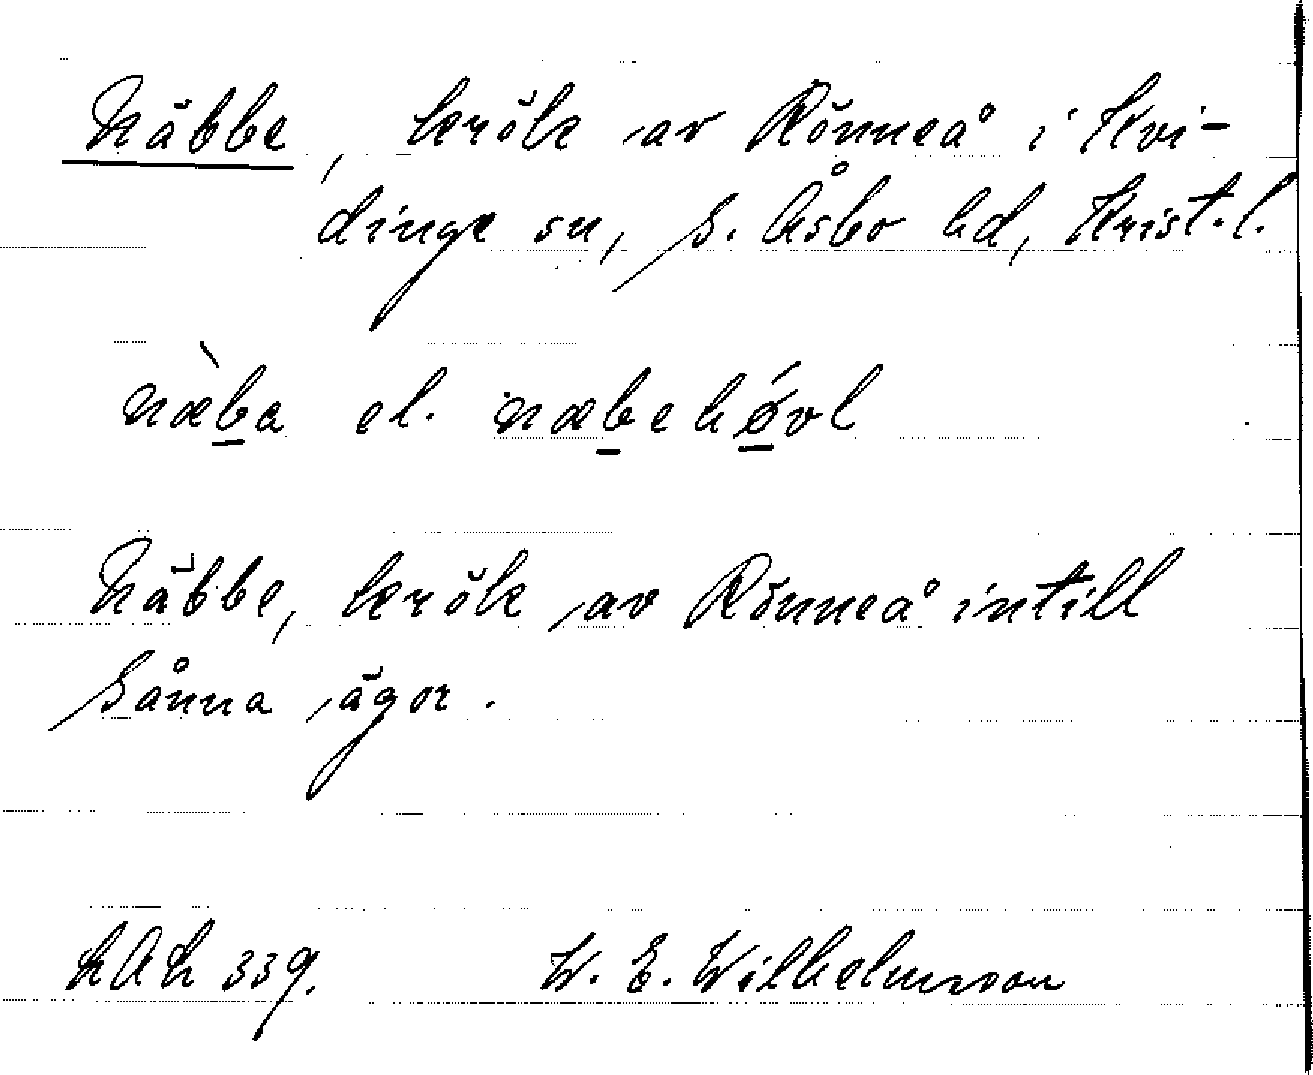 Näbbe, krök av Rönneå i Kvi-
dinge sn, S. Åsbo hd, Krist. l.
næ̀ba el. næbehǿvl
Näbbe, krök av Rönneå intill
Sånna ägor.
LAL 339. W. E. Wilhelmson